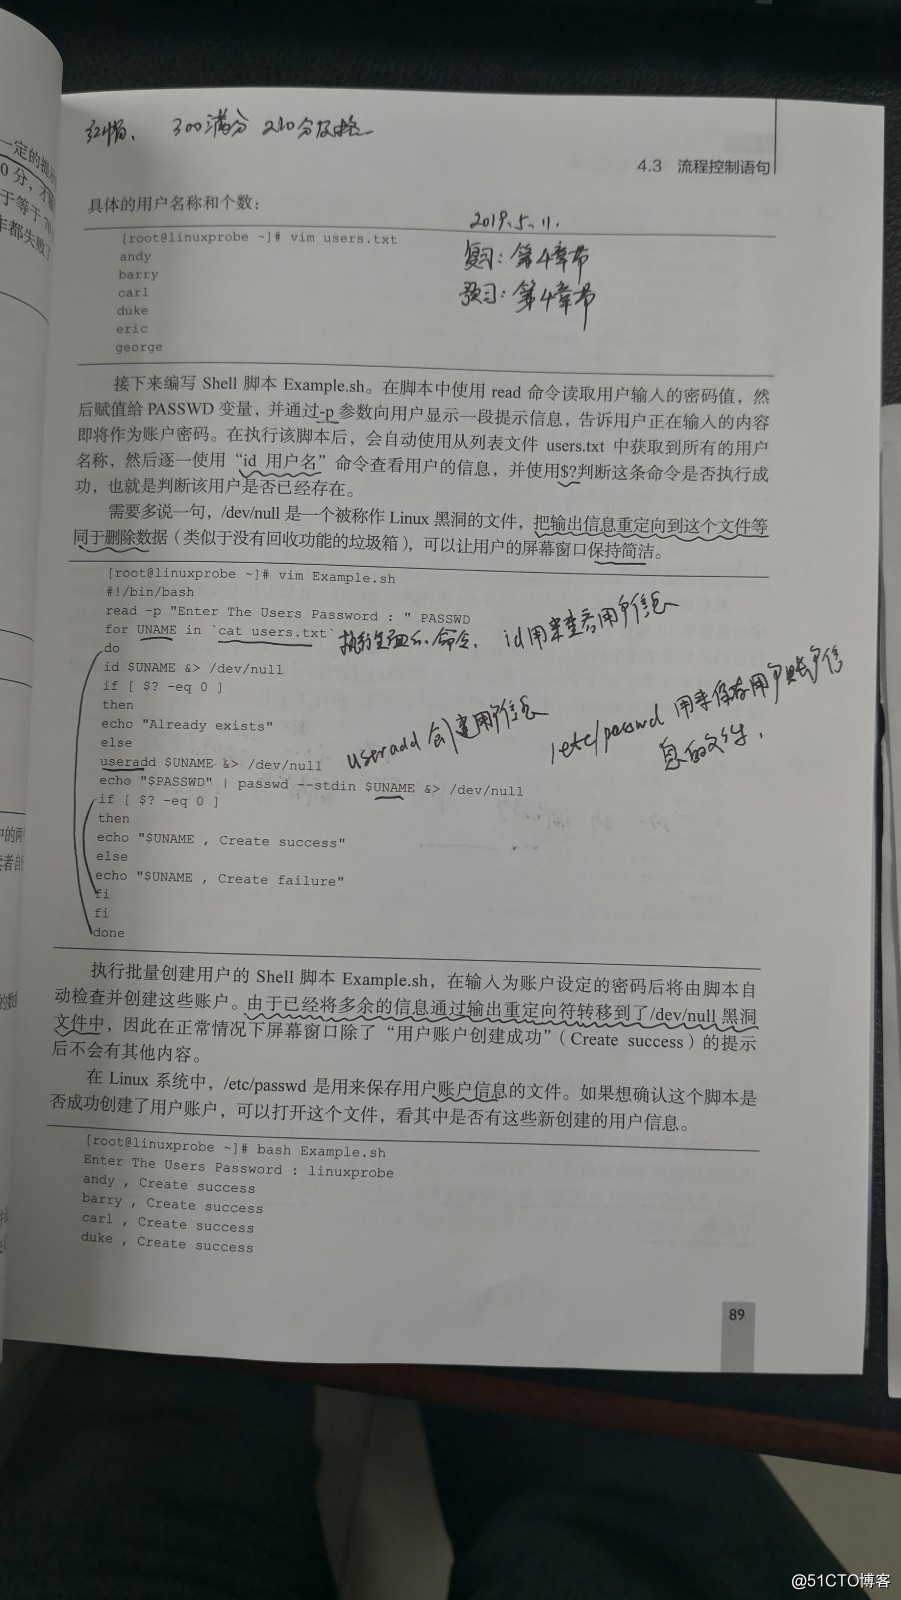 红帽、 300满分 210分及格
4.3 流程控制语句
一定的提
0分，才
于等于70
作都失败了
具体的用户名称和个数：
2019.5.11.
复习：第4章节
预习：第4章节
[root@linuxprobe ~]# vim users.txt
andy
barry
carl
duke
eric
george
接下来编写 Shell 脚本 Example.sh。在脚本中使用 read 命令读取用户输入的密码值，然
后赋值给 PASSWD 变量，并通过-p 参数向用户显示一段提示信息，告诉用户正在输入的内容
即将作为账户密码。在执行该脚本后，会自动使用从列表文件 users.txt 中获取到所有的用户
名称，然后逐一使用“id 用户名”命令查看用户的信息，并使用$?判断这条命令是否执行成
功，也就是判断该用户是否已经存在。
需要多说一句，/dev/null 是一个被称作 Linux 黑洞的文件，把输出信息重定向到这个文件等
同于删除数据（类似于没有回收功能的垃圾箱），可以让用户的屏幕窗口保持简洁。
[root@linuxprobe ~]# vim Example.sh
#!/bin/bash
read -p "Enter The Users Password : " PASSWD
for UNAME in `cat users.txt` 执行里面的命令、 id用来查看用户信息
do
id $UNAME &> /dev/null
if [ $? -eq 0 ]
then
echo "Already exists"
else
useradd $UNAME &> /dev/null
useradd 创建用户信息
/etc/passwd 用来保存用户账户信
息的文件.
echo "$PASSWD" | passwd --stdin $UNAME &> /dev/null
if [ $? -eq 0 ]
then
echo "$UNAME , Create success"
else
echo "$UNAME , Create failure"
fi
fi
done
中的两
读者自
的数
执行批量创建用户的 Shell 脚本 Example.sh，在输入为账户设定的密码后将由脚本自
动检查并创建这些账户。由于已经将多余的信息通过输出重定向符转移到了/dev/null 黑洞
文件中，因此在正常情况下屏幕窗口除了“用户账户创建成功”（Create success）的提示
后不会有其他内容。
在 Linux 系统中，/etc/passwd 是用来保存用户账户信息的文件。如果想确认这个脚本是
否成功创建了用户账户，可以打开这个文件，看其中是否有这些新创建的用户信息。
[root@linuxprobe ~]# bash Example.sh
Enter The Users Password : linuxprobe
andy , Create success
barry , Create success
carl , Create success
duke , Create success
89
@51CTO博客